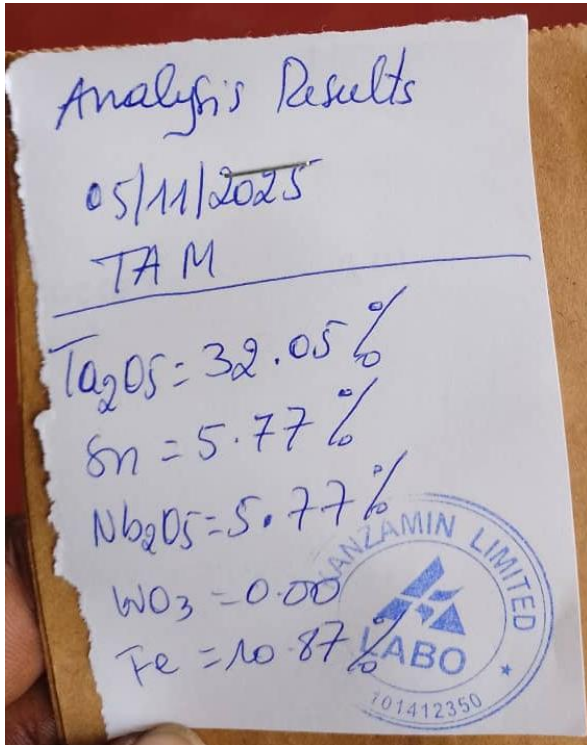 Analysis Results
05/11/2025
TAM
Ta2O5 = 32.05 %
Sn = 5.77 %
Nb2O5 = 5.77 %
WO3 = 0.00
Fe = 10.87 %
ANZAMIN LIMITED
LABO
101412350